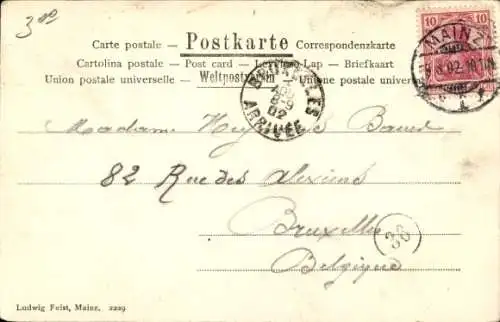 3.00
Carte postale — Postkarte — Correspondenzkarte
Cartolina postale — Post card — Lap — Briefkaart
Union postale universelle — Weltpostverein — Unione postale universale
10 10
MAINZ
8.02.10
BRUXELLES
8-9
02
ARRIVÉE
Madame Baud
82 Rue des Alexiens
Bruxelles
36
Belgique
Ludwig Feist, Mainz. 2229